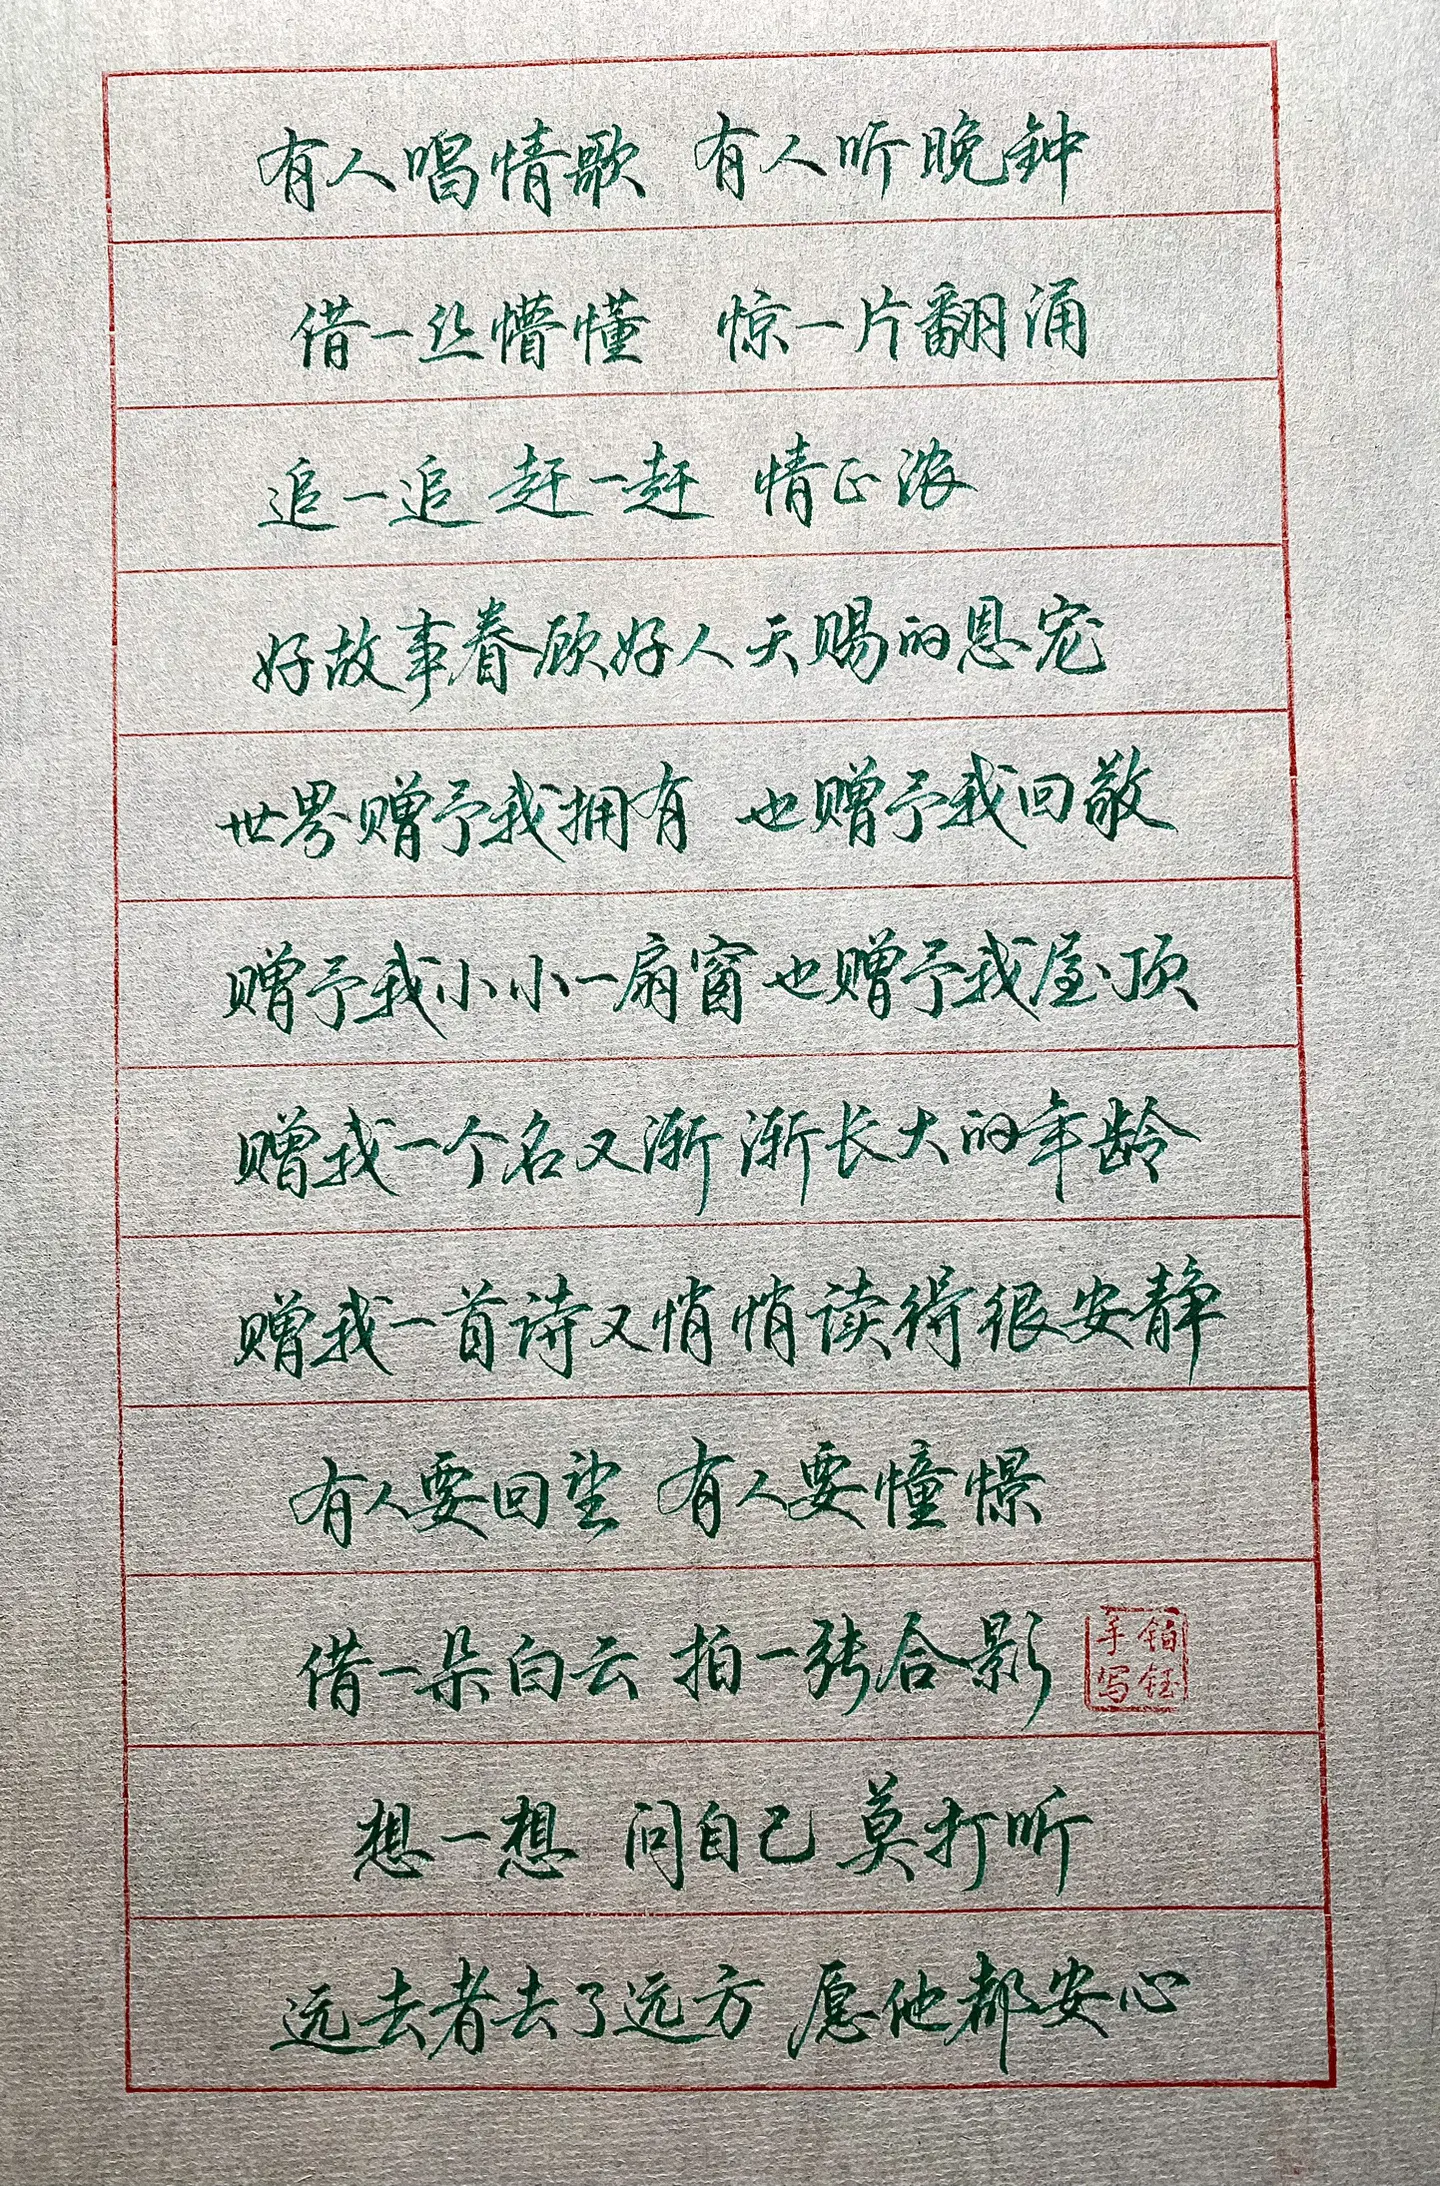 有人唱情歌 有人听晚钟
借一丝懵懂 惊一片翻涌
追一追 赶一赶 情正浓
好故事眷顾好人天赐的恩宠
世界赠予我拥有 也赠予我回敬
赠予我小小一扇窗也赠予我屋顶
赠我一个名又渐渐长大的年龄
赠我一首诗又悄悄读得很安静
有人要回望 有人要憧憬
借一朵白云 拍一张合影
铂钰手写
想一想 问自己 莫打听
远去者去了远方 愿他都安心